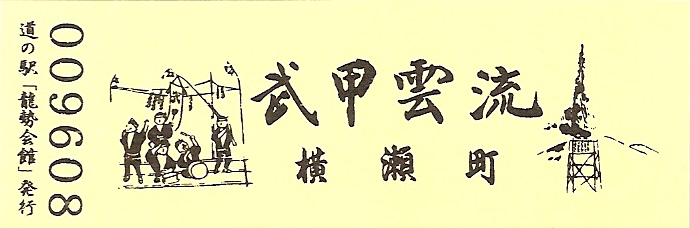 道の駅「龍勢会館」発行
009608
武甲雲流
横瀬町